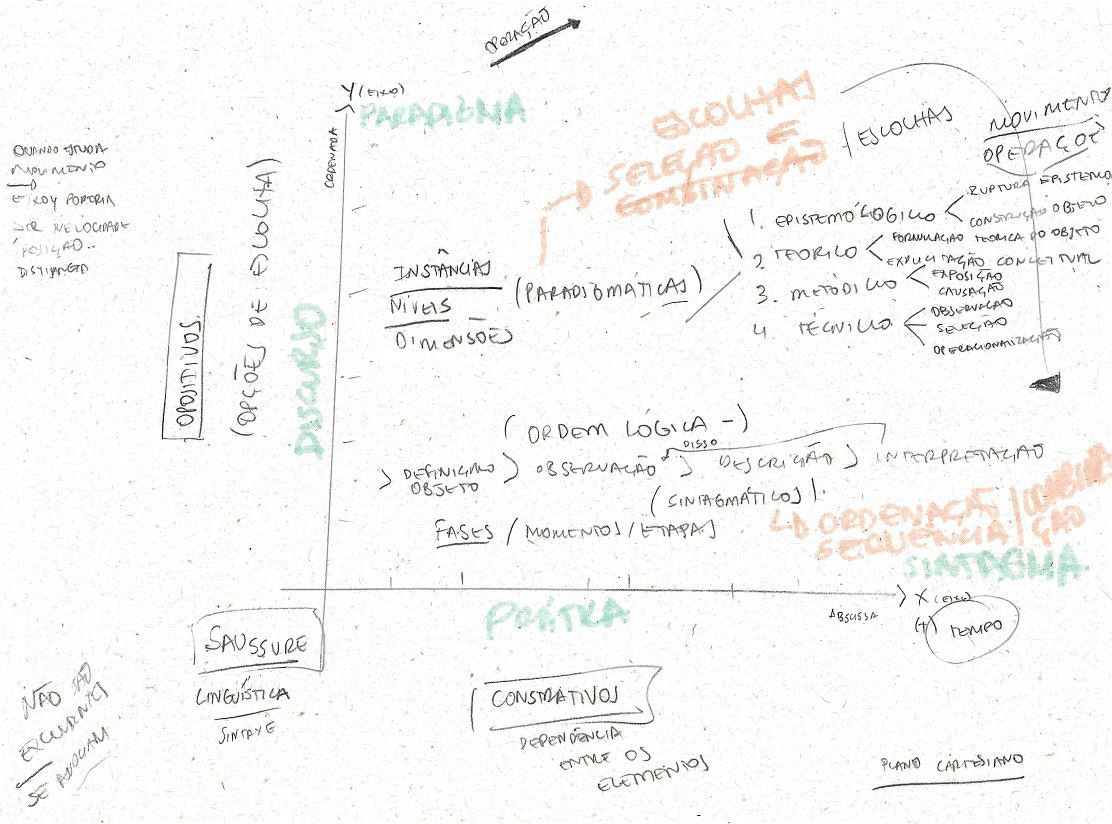 OPERAÇÃO
Y (EIXO)
PARADIGMA
ORDENADA
ESCOLHAS
SELEÇÃO E
COMBINAÇÃO
/ ESCOLHAS
MOVIMENTO
OPERAÇÕES
QUANDO ESTUDA
MOVIMENTO
EIXO Y PODERIA
SER VELOCIDADE
POSIÇÃO..
OPOSITIVOS
(OPÇÕES DE ESCOLHA)
DISCURSO
INSTÂNCIAS
NÍVEIS
DIMENSÕES
(PARADIGMÁTICAS)
1. EPISTEMOLÓGICO < RUPTURA EPISTEMO
CONSTRUÇÃO OBJETO
2 TEÓRICO < FORMULAÇÃO TEÓRICA DO OBJETO
EXPLICITAÇÃO CONCEITUAL
3. METÓDICO < EXPOSIÇÃO
CAUSAÇÃO
4 TÉCNICO < OBSERVAÇÃO
SELEÇÃO
OPERACIONALIZAÇÃO
(ORDEM LÓGICA -)
DISSO
> DEFINIÇÃO OBJETO > OBSERVAÇÃO > DESCRIÇÃO > INTERPRETAÇÃO
(SINTAGMÁTICOS)
FASES / MOMENTOS / ETAPAS
ORDENAÇÃO
SEQUÊNCIA
SINTAGMA
X (EIXO)
ABSISSA
(+) TEMPO
PRÁTICA
SAUSSURE
LINGUÍSTICA
SINTAXE
CONSTRATIVOS
DEPENDÊNCIA
ENTRE OS
ELEMENTOS
NÃO SÃO
EXCLUDENTES
PLANO CARTESIANO